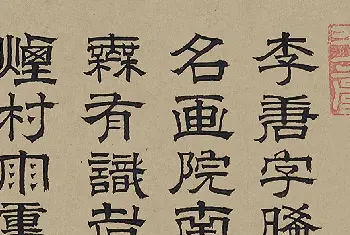 李唐字晞
名画院南
無有識者
煙村雨裏